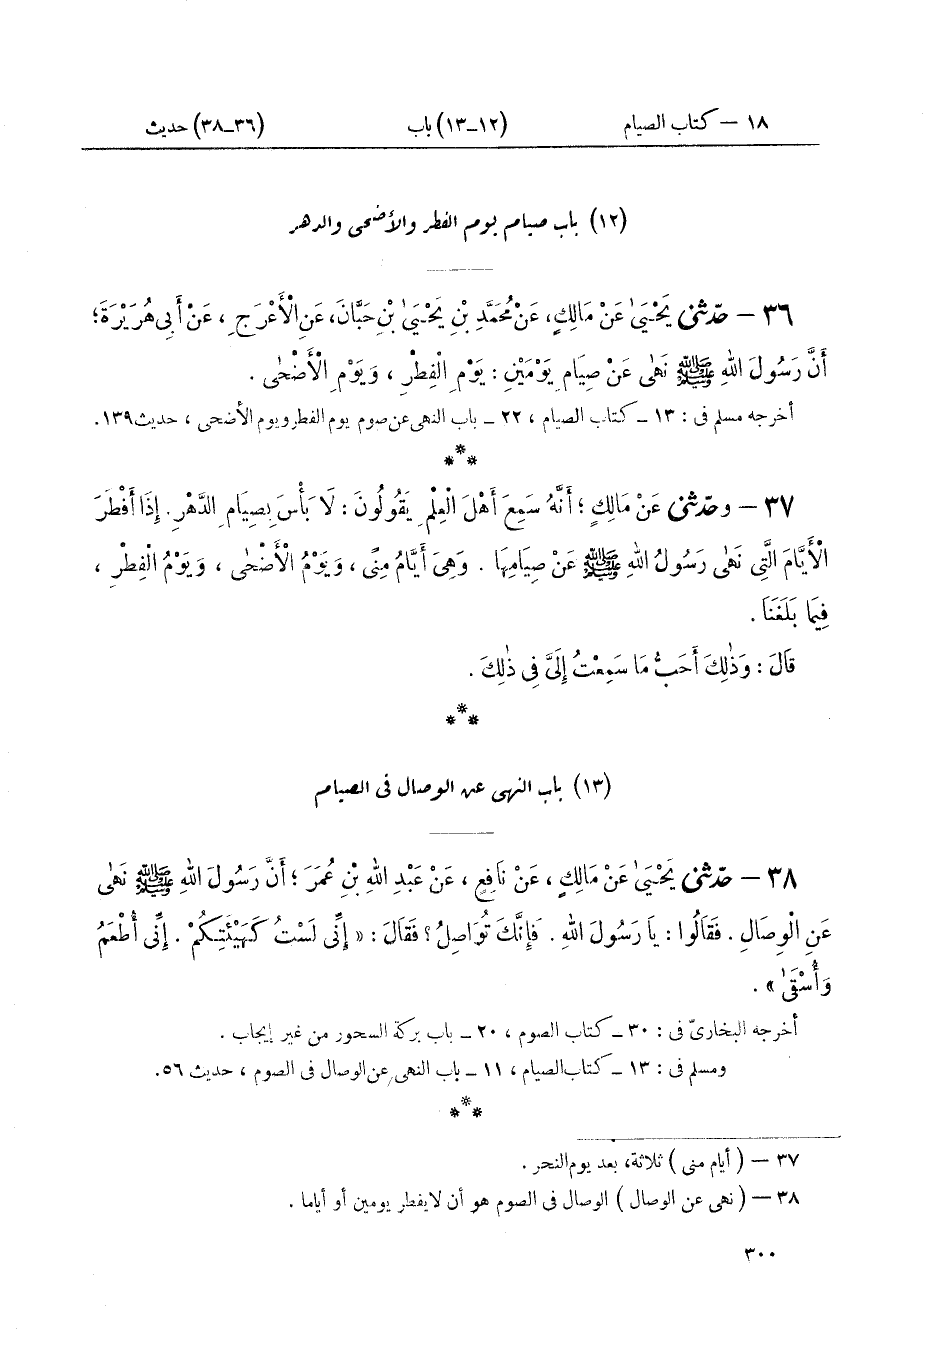 ١٨ – كتاب الصيام (١٢–١٣) باب (٣٦–٣٨) حديث
(١٢) باب صيام يوم الفطر والأضحى والدهر
٣٦ – حَدَّثَنِى يَحْيَىٰ عَنْ مَالِكٍ، عَنْ مُحَمَّدِ بْنِ يَحْيَىٰ بْنِ حَبَّانَ، عَنِ الْأَعْرَجِ، عَنْ أَبِى هُرَيْرَةَ؛
أَنَّ رَسُولَ اللهِ ﷺ نَهَىٰ عَنْ صِيَامِ يَوْمَيْنِ: يَوْمِ الْفِطْرِ، وَيَوْمِ الْأَضْحَىٰ.
أخرجه مسلم فى: ١٣ – كتاب الصيام، ٢٢ – باب النهى عن صوم يوم الفطر ويوم الأضحى، حديث ١٣٩.
***
٣٧ – وحدّثنى عَنْ مَالِكٍ؛ أَنَّهُ سَمِعَ أَهْلَ الْعِلْمِ يَقُولُونَ: لَا بَأْسَ بِصِيَامِ الدَّهْرِ. إِذَا أَفْطَرَ
الْأَيَّامَ الَّتِى نَهَىٰ رَسُولُ اللهِ ﷺ عَنْ صِيَامِهَا. وَهِىَ أَيَّامُ مِنًى، وَيَوْمُ الْأَضْحَىٰ، وَيَوْمُ الْفِطْرِ،
فِيمَا بَلَغَنَا.
قَالَ: وَذٰلِكَ أَحَبُّ مَا سَمِعْتُ إِلَىَّ فِى ذٰلِكَ.
***
(١٣) باب النهى عن الوصال فى الصيام
٣٨ – حدّثنى يَحْيَىٰ عَنْ مَالِكٍ، عَنْ نَافِعٍ، عَنْ عَبْدِ اللهِ بْنِ عُمَرَ؛ أَنَّ رَسُولَ اللهِ ﷺ نَهَىٰ
عَنِ الْوِصَالِ. فَقَالُوا: يَا رَسُولَ اللهِ. فَإِنَّكَ تُوَاصِلُ؟ فَقَالَ: «إِنِّى لَسْتُ كَهَيْئَتِكُمْ. إِنِّى أُطْعَمُ
وَأُسْقَىٰ».
أخرجه البخارىّ فى: ٣٠ – كتاب الصوم، ٢٠ – باب بركة السحور من غير إيجاب.
ومسلم فى: ١٣ – كتاب الصيام، ١١ – باب النهى عن الوصال فى الصوم، حديث ٥٦.
***
٣٧ – (أيام منى) ثلاثة، بعد يوم النحر.
٣٨ – (نهى عن الوصال) الوصال فى الصوم هو أن لا يفطر يومين أو أياما.
٣٠٠